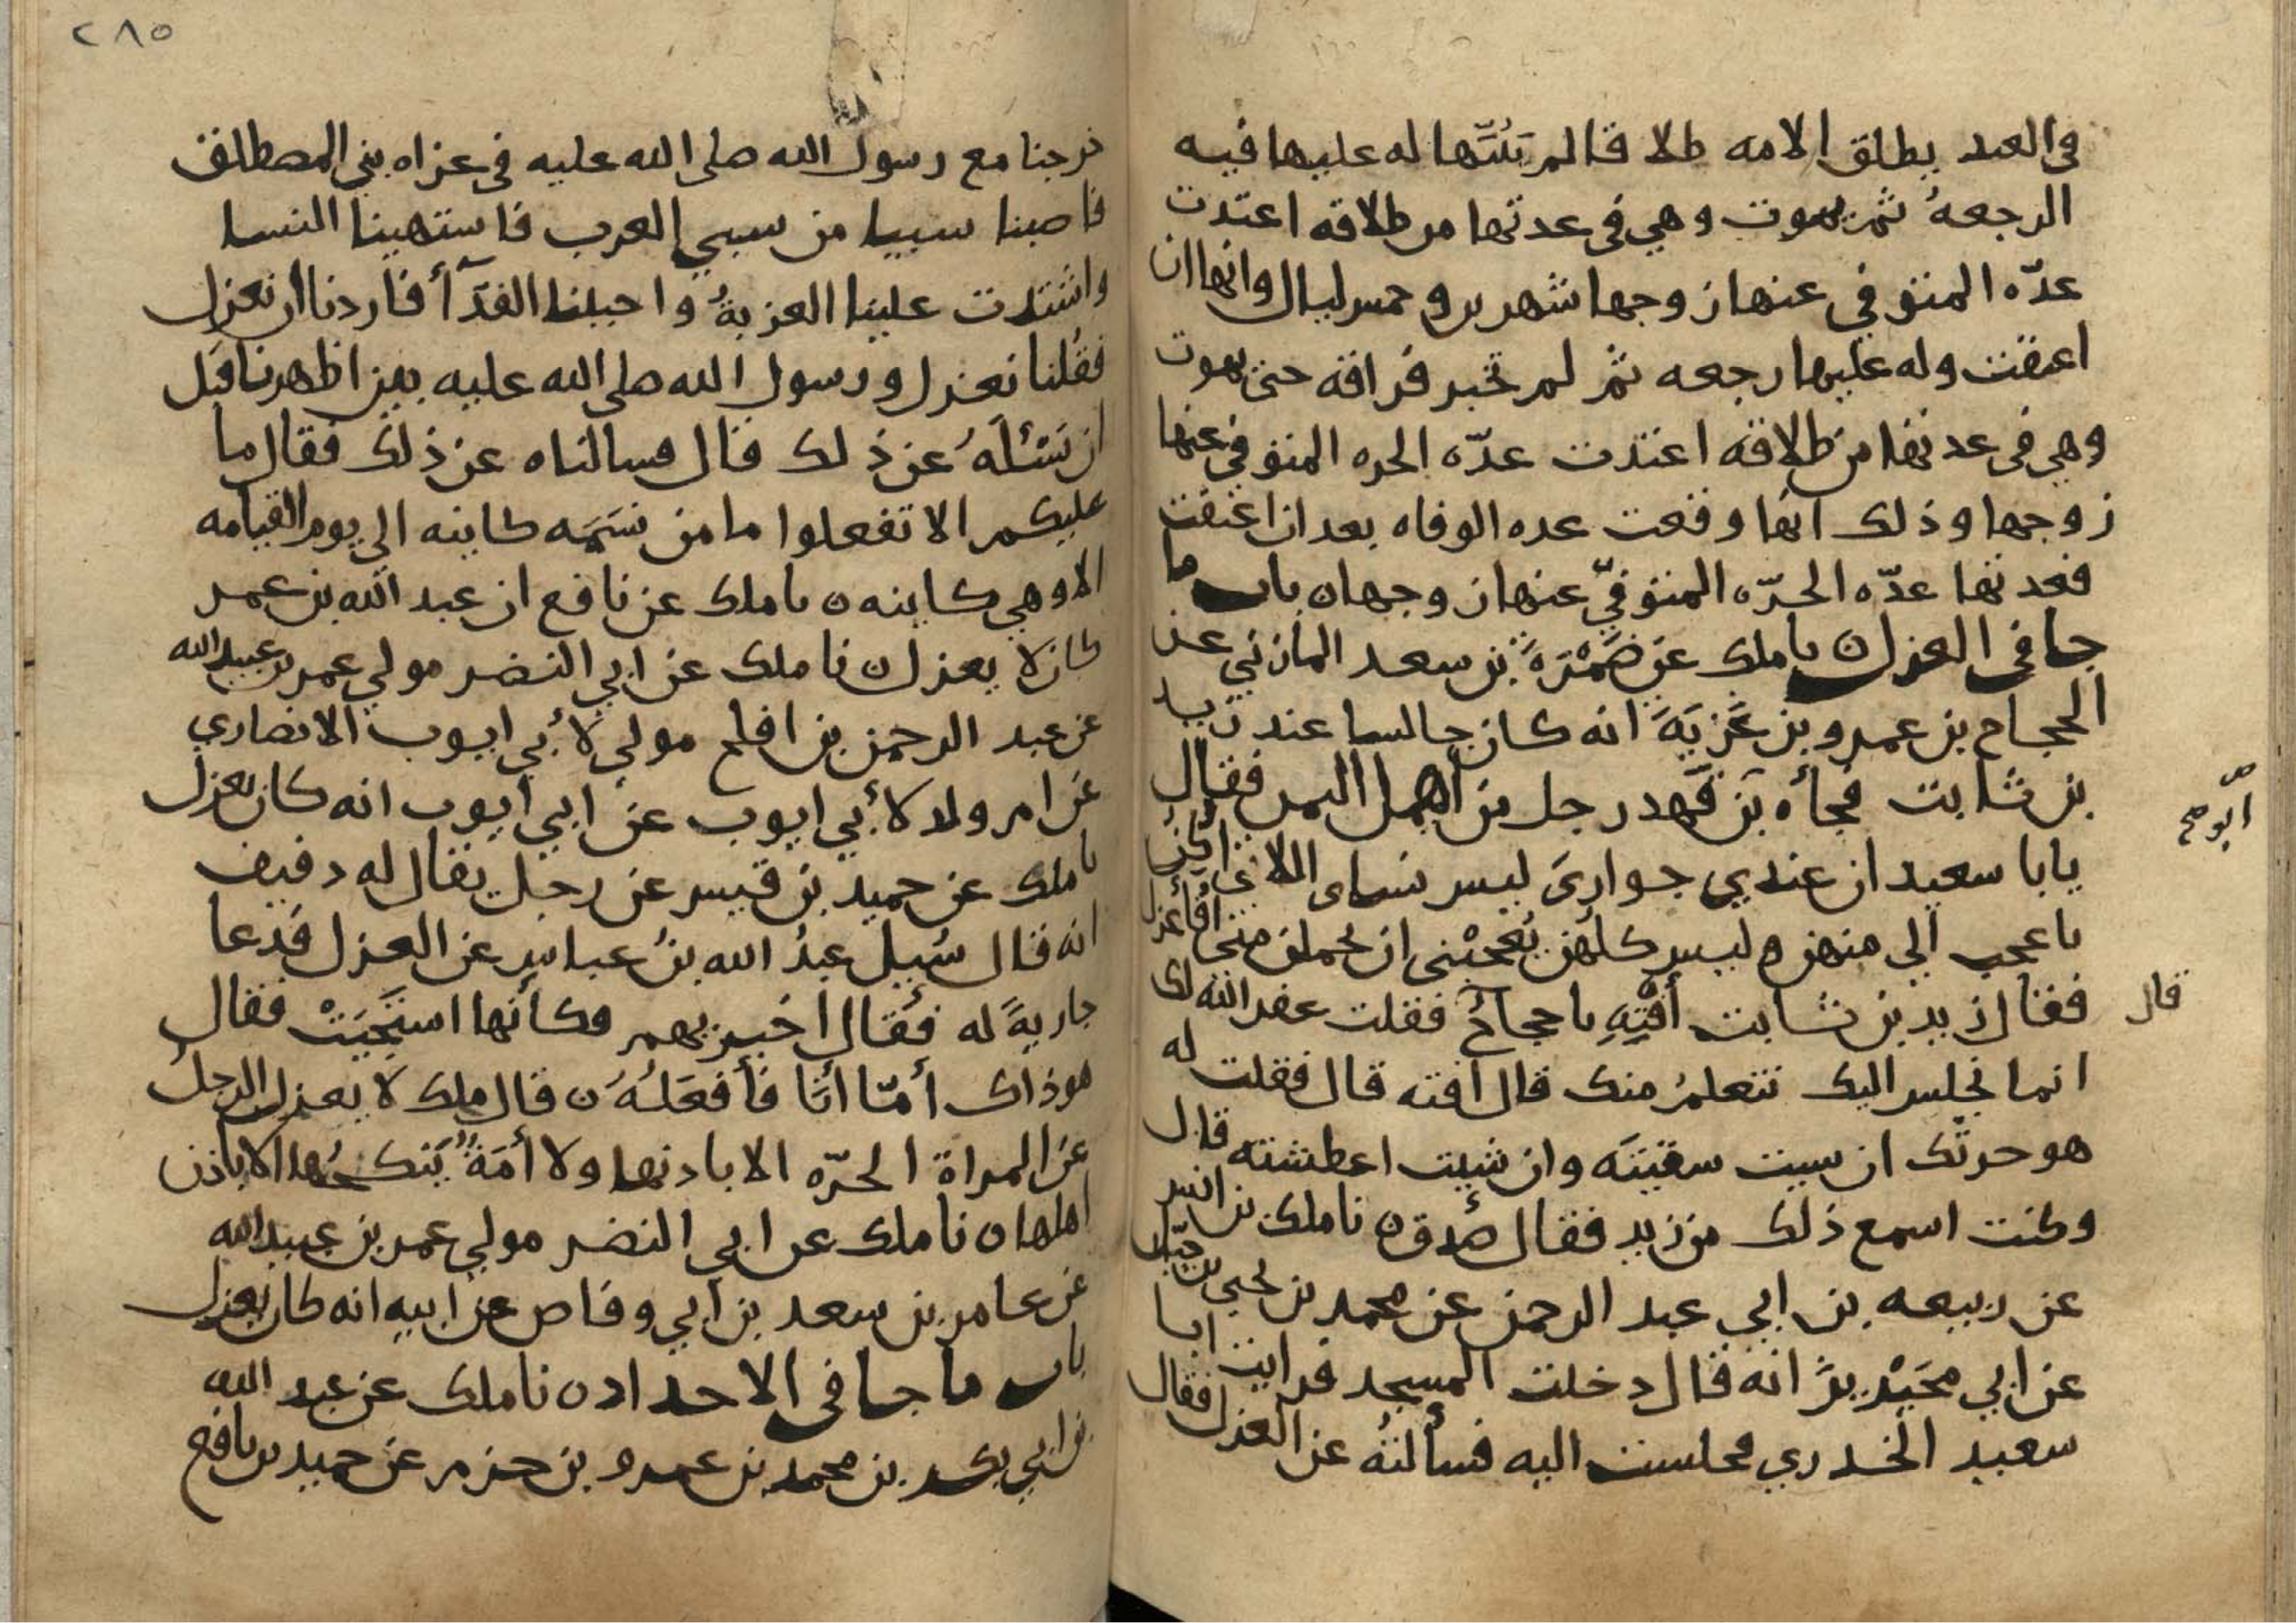 في العبد يطلق الامه طلاقا لم يَبُتّها له عليها فيه
الرجعهُ ثم يموت وهي في عدتها من طلاقه اعتدت
عدّه المتوفي عنها زوجها شهرين وخمس ليال وانها ان
اعتقت وله عليها رجعه ثم لم تخير فراقه حتى يموت
وهي في عدتها من طلاقه اعتدت عدّه الحره المتوفي عنها
زوجها وذلك انها وقعت عده الوفاه بعد ان اعتقت
فعدتها عدّه الحرّه المتوفيّ عنها زوجها ن باب ما
جا في العزل ن نا ملك عن ضَمْرَةَ بن سعد المازني عن
الحجاج بن عمرو بن غَزِيَةَ انه كان جالسا عند زيد
بن ثابت فجأه بن قَهد رجل من أهل اليمن فقال
يابا سعيد ان عندي جواريَ ليس نساى اللاتي أُكِنُّ
باعجب الي منهن وليس كلُهن يُعجبْني ان تحملن منى أفأعزل
فقال زيد بن ثابت أفْتِهِ يا حجاجُ فقلت غفر الله لك
قال
انما نجلس اليك نتعلمُ منك قال افته قال فقلت له
هو حرثك ان شيت سقيتَه وان شيت اعطشته قال
وكنت اسمع ذلك من زيد فقال صَدق ن نا ملك بن انس
عن ربيعه بن ابي عبد الرحمن عن محمد بن يحيى بن حبّان
عن ابي محَيْريز انه قال دخلت المسجد فرايت ابا
سعيد الخدري فجلست اليه فسألتهُ عن العزل فقال
٢٨٥
خرجنا مع رسول الله صلى الله عليه في غزاه بني المصطلق
فاصبنا سبيا من سبي العرب فاشتهينا النسا
واشتدت علينا العزبةُ واحببنا الفدآأ فاردنا أن نعزل
فقُلنا نعزل ورسول الله صلى الله عليه بين اظهرنا قبَل
ان نَسْئلَهُ عن ذلك قال فسالناه عن ذلك فقال ما
عليكم الا تفعلوا ما من نسَمَه كاينه الي يوم القيامه
الا وهي كاينه ن نا ملك عن نافع ان عبد الله بن عمر
كان لا يعزل ن نا ملك عن ابي النضر مولي عمر بن عبيد الله
عن عبد الرحمن بن افلح مولي لأبي ايوب الانصاري
عن ام ولد لأبي ايوب عن ابي ايوب انه كان يعزل
نا ملك عن حميد بن قيس عن رجل يقال له دفيف
انه قال سُيِل عبدُ الله بنُ عباس عن العزل فدعا
جاريةً له فقال اخبريهم فكأنها استَحيَتْ فقال
هو ذاك أمّا أنا فأفعَلُهُ ن قال ملك لا يعزل الرجل
عن المراة الحرّه الا باذنها ولا أمَةً يَنكحُها الا باذن
اهلها ن نا ملك عن ابي النضر مولي عمر بن عبيد الله
عن عامر بن سعد بن أبي وقاص عن ابيه انه كان يعزل
باب ما جا في الاحداد ن نا ملك عن عبد الله
بن ابي بكر بن محمد بن عمرو بن حزم عن حميد بن نافع